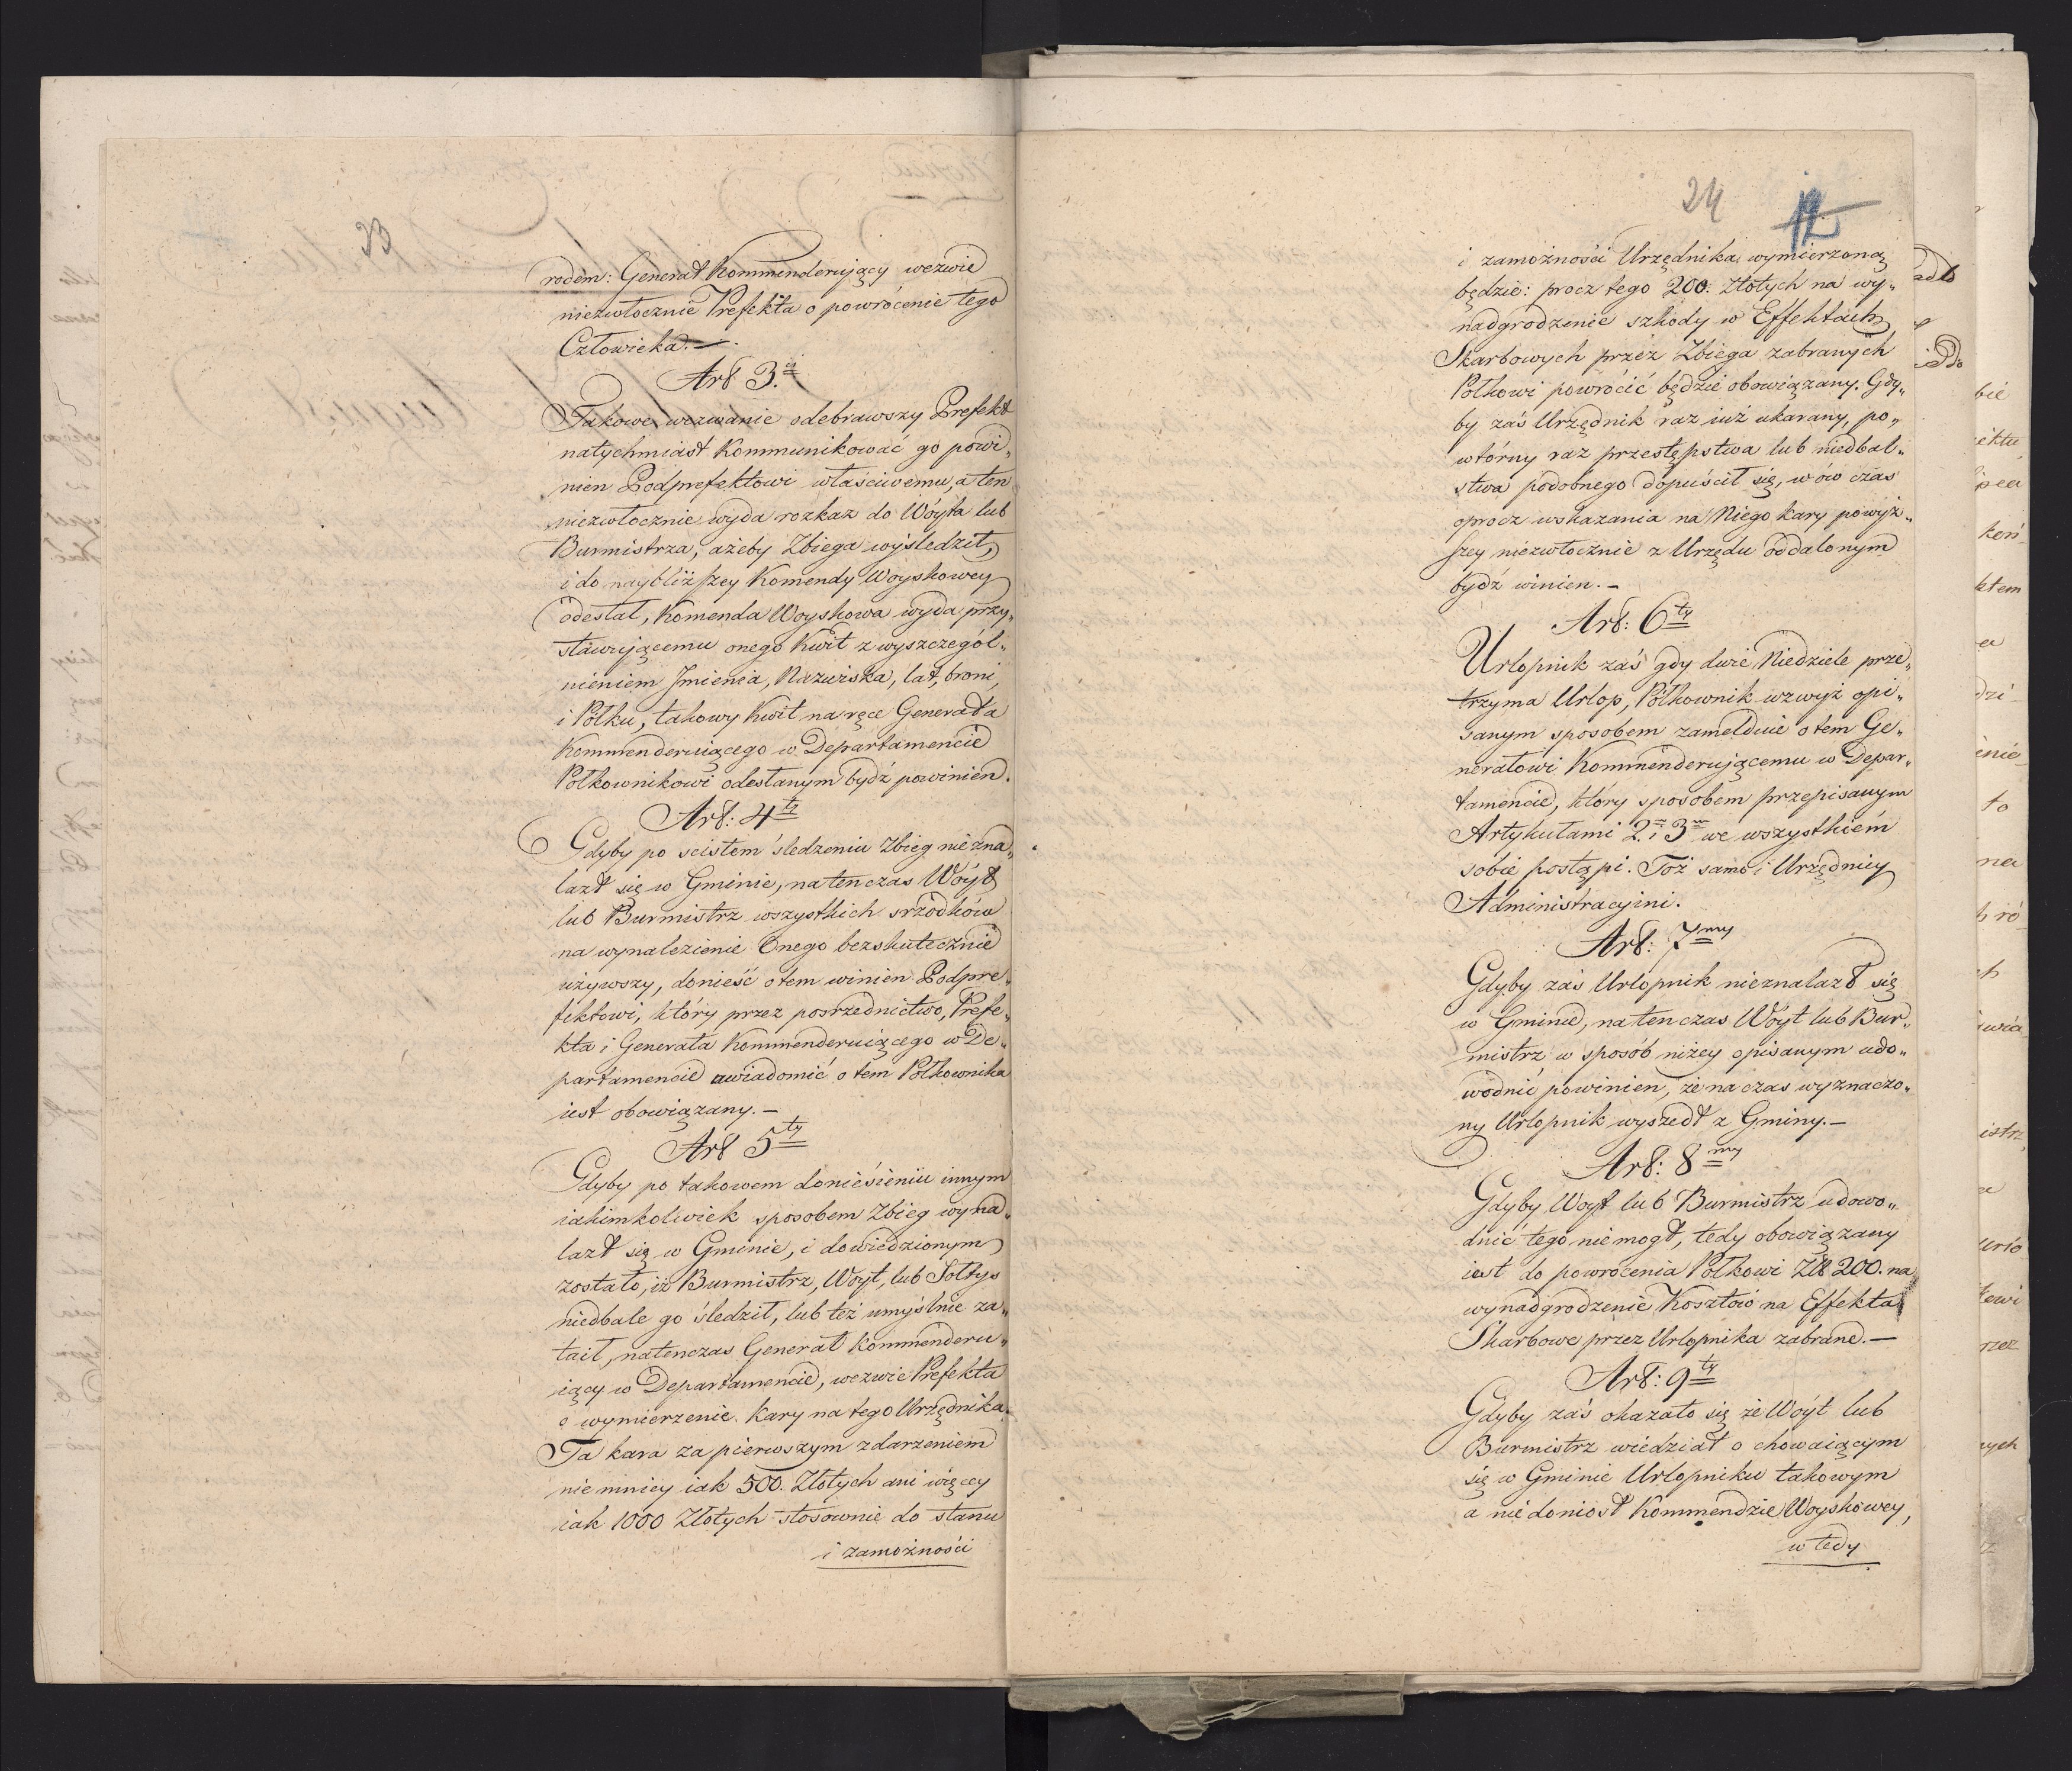 23
rodem: Generał Kommenderujący wezwie
niezwłocznie Prefekta o powrócenie tego
Człowieka. —
Art 3.ci
Takowe wezwanie odebrawszy Prefekt
natychmiast Kommunikować go powi„
nien Podprefektowi właściwemu, a ten
niezwłocznie wyda rozkaz do Wóyta lub
Burmistrza, ażeby Zbiega wyśledził,
i do naybliższey Komendy Woyskowey
odesłał, Komenda Woyskowa wyda przy„
stawującemu onego Kwit z wyszczegól„
nieniem Jmienia, Nazwiska, lat, broni,
i Półku, takowy Kwit na ręce Generała
Kommenderuiącego w Departamencie
Półkownikowi odesłanym bydź powinien.
Art: 4ty
Gdyby po scisłem śledzeniu Zbieg nie zna„
lazł się w Gminie, na ten czas Wóyt
lub Burmistrz wszystkich srzodków
na wynalezienie Onego bezskutecznie
używszy, donieść o tem winien Podpre„
fektowi, który przez posrzednictwo, Prefe„
kta i Generała Kommenderuiącego w De„
partamencie uwiadomić o tem Półkownika
iest obowiązany. —
Art 5ty
Gdyby po takowem doniesieniu innym
iakimkolwiek sposobem Zbieg wyna„
lazł się w Gminie, i dowiedzionym
zostało, iż Burmistrz, Woyt, lub Sołtys
niedbale go śledził, lub też umyślnie za„
taił, natenczas Generał Kommenderu„
iący w Departamencie, wezwie Prefekta
o wymierzenie Kary na tego Urzędnika.
Ta kara za pierwszym zdarzeniem
nie mniey iak 500. Złotych ani więcey
iak 1000 Złotych stosownie do stanu
i zamożności
24
12
i zamożności Urzędnika wymierzoną
będzie: procz tego 200. Złotych na wy„
nadgrodzenie szkody w Effektach
Skarbowych przez Zbiega zabranych
Półkowi powrócić będzie obowiązany. Gdy„
by zaś Urzędnik raz iuż ukarany, po„
wtórny raz przestępstwa lub niedbal„
stwa podobnego dopuścił się, w ów czas
oprocz wskazania na Niego kary powyż„
szey niezwłocznie z Urzędu oddalonym
bydź winien. —
Art: 6ty
Urlopnik zaś gdy dwie Niedziele prze„
trzyma Urlop, Półkownik wzwyż opi„
sanym sposobem zamelduie o tem Ge„
nerałowi Kommenderującemu w Depar„
tamencie, który sposobem przepisanym
Artykułami 2m i 3m we wszystkiém
sobie postąpi. Toż samo i Urzędnicy
Administracyini.
Art: 7my
Gdyby zaś Urlopnik nieznalazł się
w Gminie, na ten czas Wóyt lub Bur„
mistrz w sposób niżey opisanym udo„
wodnić powinien, że na czas wyznaczo„
ny Urlopnik wyszedł z Gminy. —
Art: 8my
Gdyby Woyt lub Burmistrz udowo„
dnić tego nie mogł, tedy obowiązany
iest do powrocenia Półkowi Złł 200. na
wynadgrodzenie Kosztów na Effekta
Skarbowe przez Urlopnika zabrane. —
Art: 9ty
Gdyby zaś okazało się że Wóyt lub
Burmistrz wiedział o chowaiącym
się w Gminie Urlopniku takowym
a nie doniosł Kommendzie Woyskowey,
w tedy